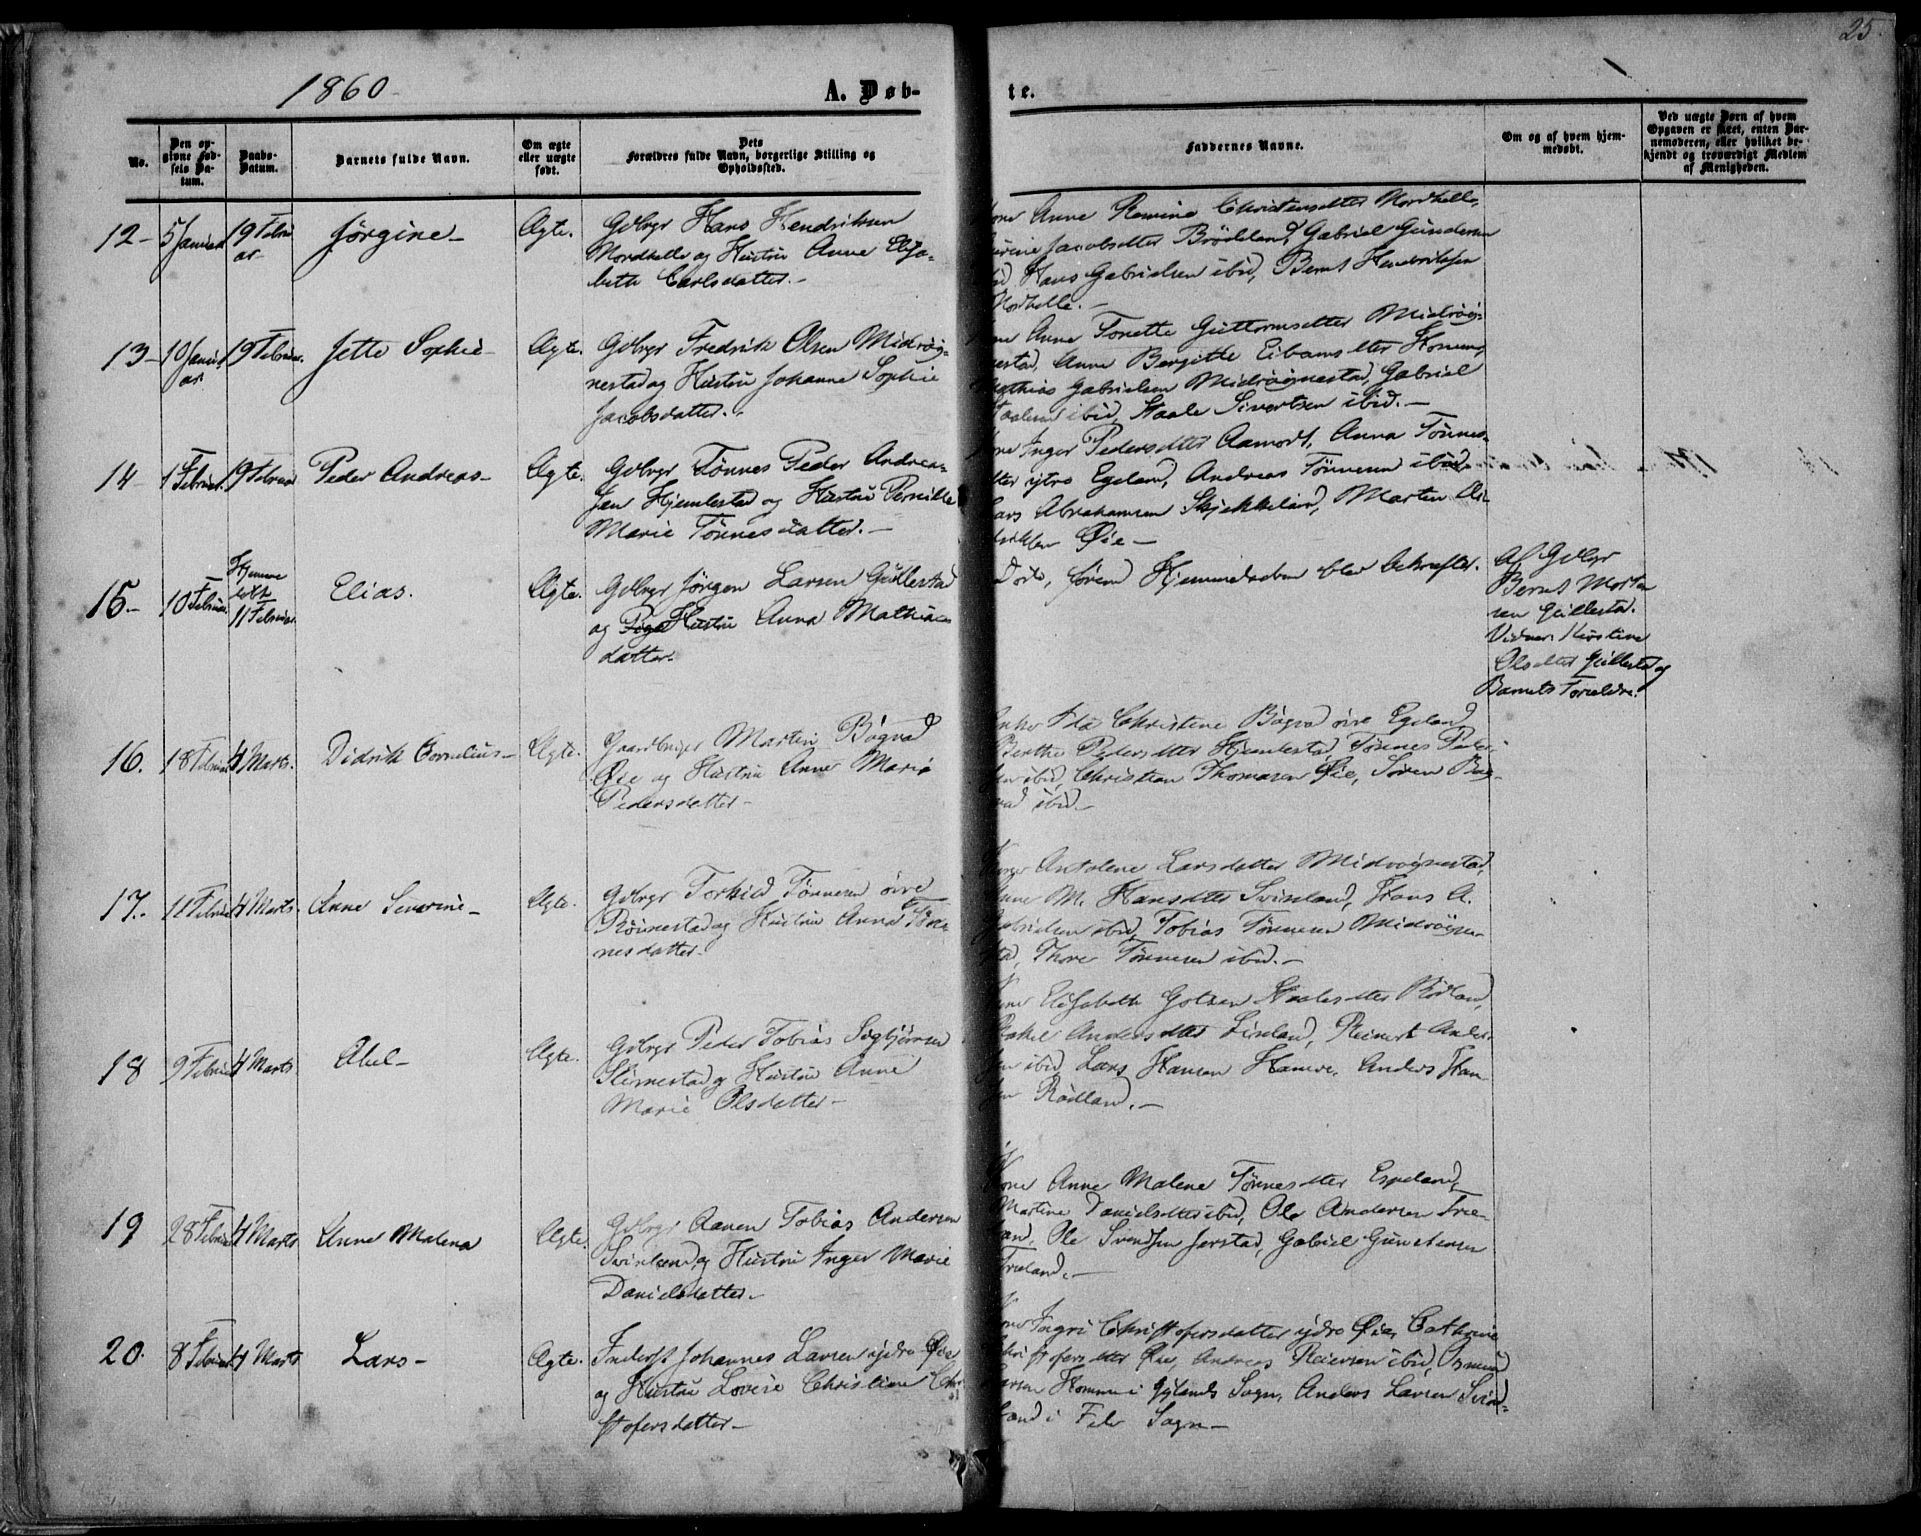 25.
1860
A. Døb-
te.
No.
Den op-
givne Fød-
sels Da-
tum.
Daabs-
Datum.
Barnets fulde Navn.
Om ægte
eller uægte
født.
Dets
Forældres fulde Navn, borgerlige Stilling og
Opholdssted.
Faddernes Navne.
Om og af hvem hjem-
medøbt.
Ved uægte Børn af hvem
Opgaven er skeet, enten Bar-
nemoderen, eller hvilket be-
kjendt og troværdigt Medlem
af Menigheden.
12- 5 Januar 19 Febru
ar.
Jørgine-
Ægte.
Gdbrgr Hans Hendriksen
Nordhelle og Hustru Anne Elisa-
beth Carlsdatter.-
Anne Romine Christensdtter Nordhelle,
Jacobsdtter Brødeland, Gabriel Gundersen
Hans Gabrielsen ibid, Bernt Hendriksen
Nordhelle.-
13- 10 Janu
ar. 19 Februar.
Jette Sophie-
Ægte.
Gdbrgr Fredrik Olsen Midrøig-
nestad og Hustru Johanne Sophie
Jacobsdatter.
Anne Tonette Guttormsdtter Midrøig-
nestad, Anne Bergitte Eibamsdtter
Mathias Gabrielsen Midrøignestad, Gabriel
ibid, Staale Sivertsen ibid.-
14 1 Februar 19 Februar
Peder Andreas-
Ægte.
Gdbrgr Tønnes Peder Andrea-
sen Hjemlestad og Hustru Pernille
Marie Tønnesdatter.-
Inger Pedersdtter Aamodt, Anna Tønnes-
dtter ytre Egeland, Andreas Tønnesen ibid,
Lars Abrahamsen Skjekkeland, Marten Di-
driksen Øie-
15- 10 Februar. Hjemme
døbt
11 Februar.
Elias.
Ægte.
Gdbrgr Jørgen Larsen Gullestad
og Pige Hustru Anna Mathias
datter.
Dode, førend Hjemmedaaben blev bekræftet.
Af Gdbgr
Bernt Morten
sen Gullestad.
Vidner: Kirstine
Olsdtter Gullestad og
Barnets Forældre.
16. 18 Februar 4 Marts.
Didrik Cornelius-
Ægte.
Gaardbruger Martin Bogvad
Øie og Hustru Anne Marie
Pedersdatter-
Enke Ida Christine Bogvad øvre Egeland,
Berthe Pedersdtter Hjemlestad, Tønnes Peder-
sen ibid, Christian Thomasen Øie, Søren Bog-
vad ibid.-
17. 11 Februar 4 Marts.
Anne Severine-
Ægte.
Gdbrgr Torkild Tønnesen øvre
Røinestad og Hustru Anna Tøn-
nesdatter.
Antolene Larsdatter Midrøignestad,
Anne M. Hansdtter Svindland, Hans A.
Gabrielsen ibid, Tobias Tønnesen Midrøigne-
stad, Thore Tønnesen ibid.-
18 9 Februar 4 Marts
Abel-
Ægte.
Gdbrgr Peder Tobias Sigbjørnsen
Slimestad og Hustru Anne
Marie Olsdatter-
Elisabeth Staalesdtter Rødland,
Rakel Andersdtter Liseland, Reinert Ander-
sen ibid, Lars Hansen Hamre, Anders Han-
sen Rødland.-
19 28 Februar 4 Marts
Anne Malena
Ægte.
Gdbrgr Aanen Tobias Andersen
Svindland og Hustru Inger Marie
Danielsdatter-
Kone Anne Malene Tønnesdtter Espeland,
Martine Danielsdtter ibid, Ole Andersen Tre-
land, Ole Svendsen Jerstad, Gabriel Gundersen
Treland.-
20. 8 Februar 4 Marts
Lars-
Ægte.
Inderst Johannes Larsen ydre Øie
og Hustru Lovise Christine Chri
stofersdatter-
Ingri Christofersdatter ydre Øie, Cathrine
Christofersdtter Øie, Andreas Reiersen ibid, Osmund
Larsen Homme i Gylands Sogn, Anders Larsen Svind-
land i Fede Sogn-